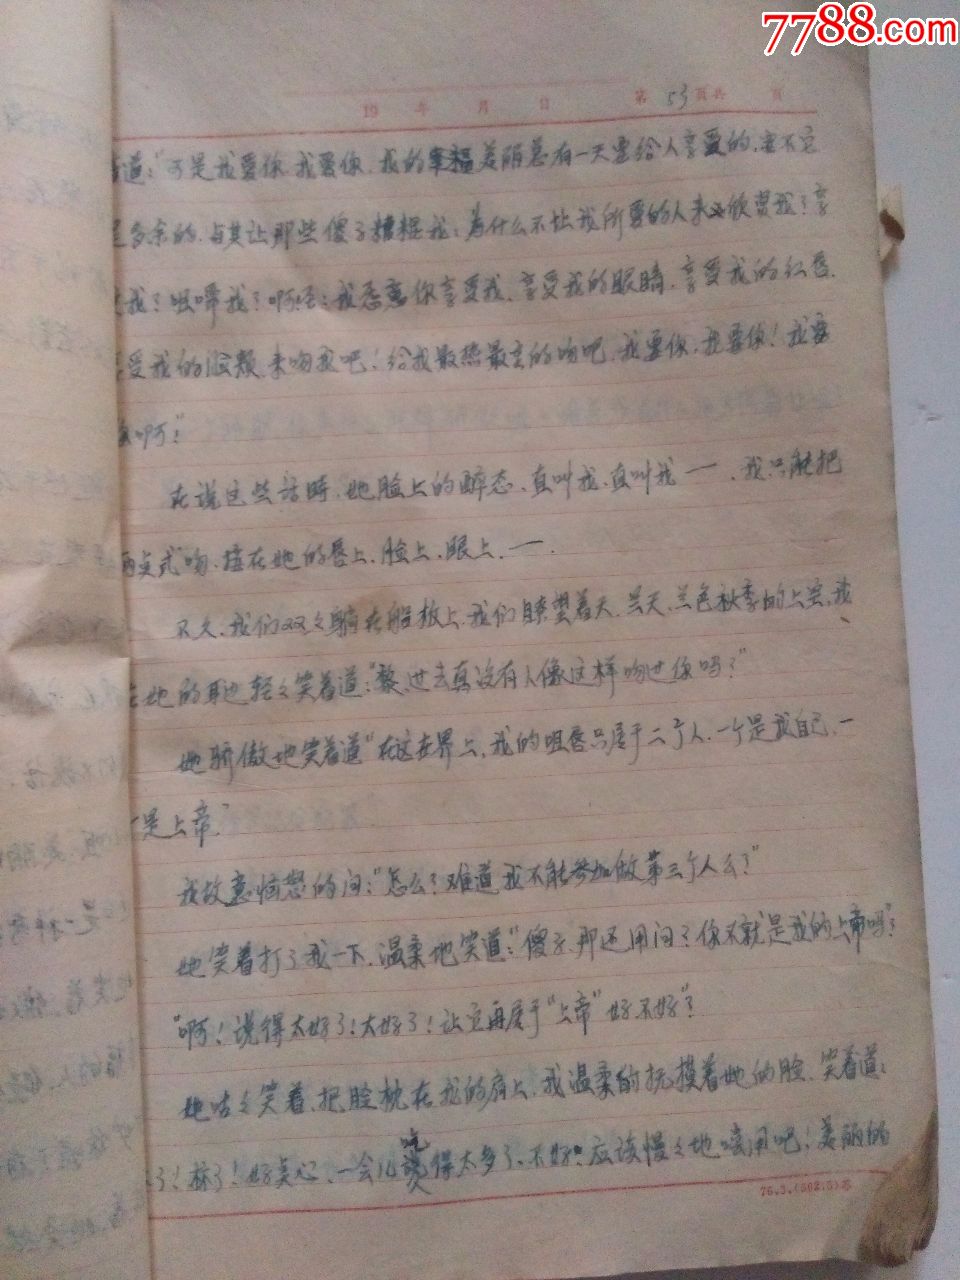 7788.com
19 年 月 日 第 53 页共 页
道:"可是我要你、我要你、我的幸福美丽总有一天要给人享受的,要不它
多余的、与其让那些傻子糟糕我;为什么不让我所爱的人来欣赏我?享
我?咀嚼我?啊!我愿意你享受我、享受我的眼睛、享受我的红唇、
受我的脸颊、来吻我吧!给我最热最的吻吧、我要你、我要你!我要
啊!"
在说这些话時、她脸上的醉态、真叫我、真叫我一、我只能把
点式吻、接在她的唇上、脸上、眼上、一.
不久、我们双々躺在船板上、我们瞭望着天、兰天、兰色秋季的上空,我
在她的耳边轻々笑着道:"黎、过去真没有人像这样吻过你吗?"
她骄傲地笑着道"在这世界上、我的咀唇只属于二个人、一个是我自己、一
个是上帝"
我故意恼怒的问:"怎么?难道我不能参加做第三个人么?"
她笑着打了我一下、温柔地笑道:"傻子、那还用问?你不就是我的上帝吗?"
"啊!说得太好了!太好了!让它再属于"上帝"好不好"?
她咕々笑着、把脸枕在我的肩上、我温柔的抚摸着她的脸、笑着道:
了!林了!好点心、一会儿吃得太多了、不好!应该慢々地嚐用吧!美丽的
76.3.(502.5)